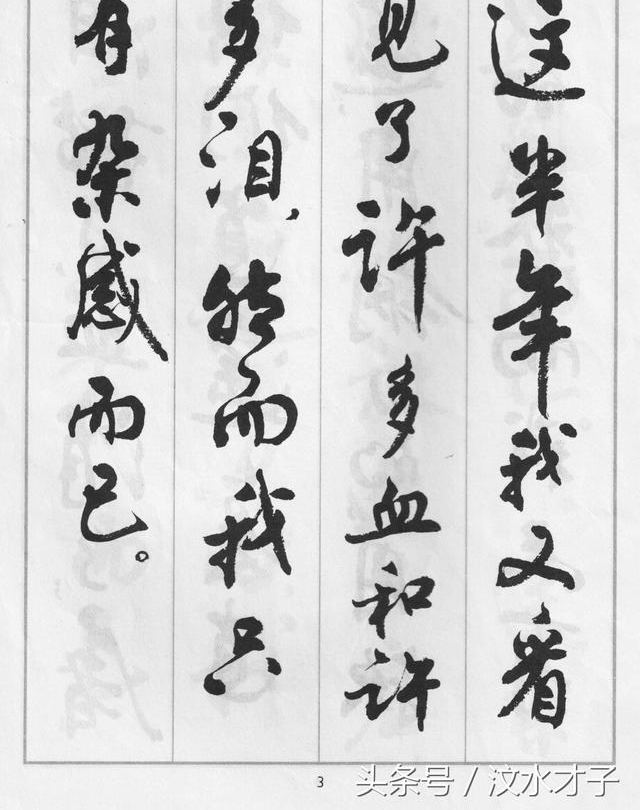 这半年我又看
见了许多血和许
多泪，然而我只
有杂感而已。
3
头条号 / 汶水才子